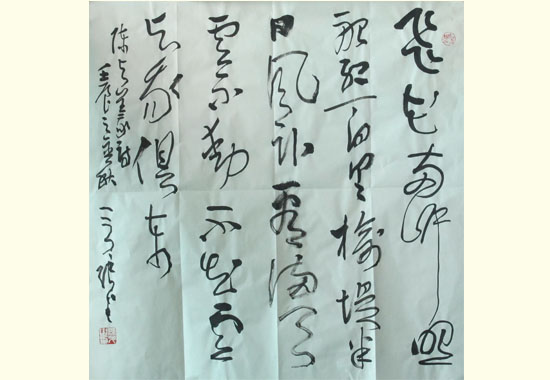 飛花两岸照
船红百里榆堤半
日风卧看满天
雲不動不知雲
与我俱东
陈与義诗
壬辰之金秋